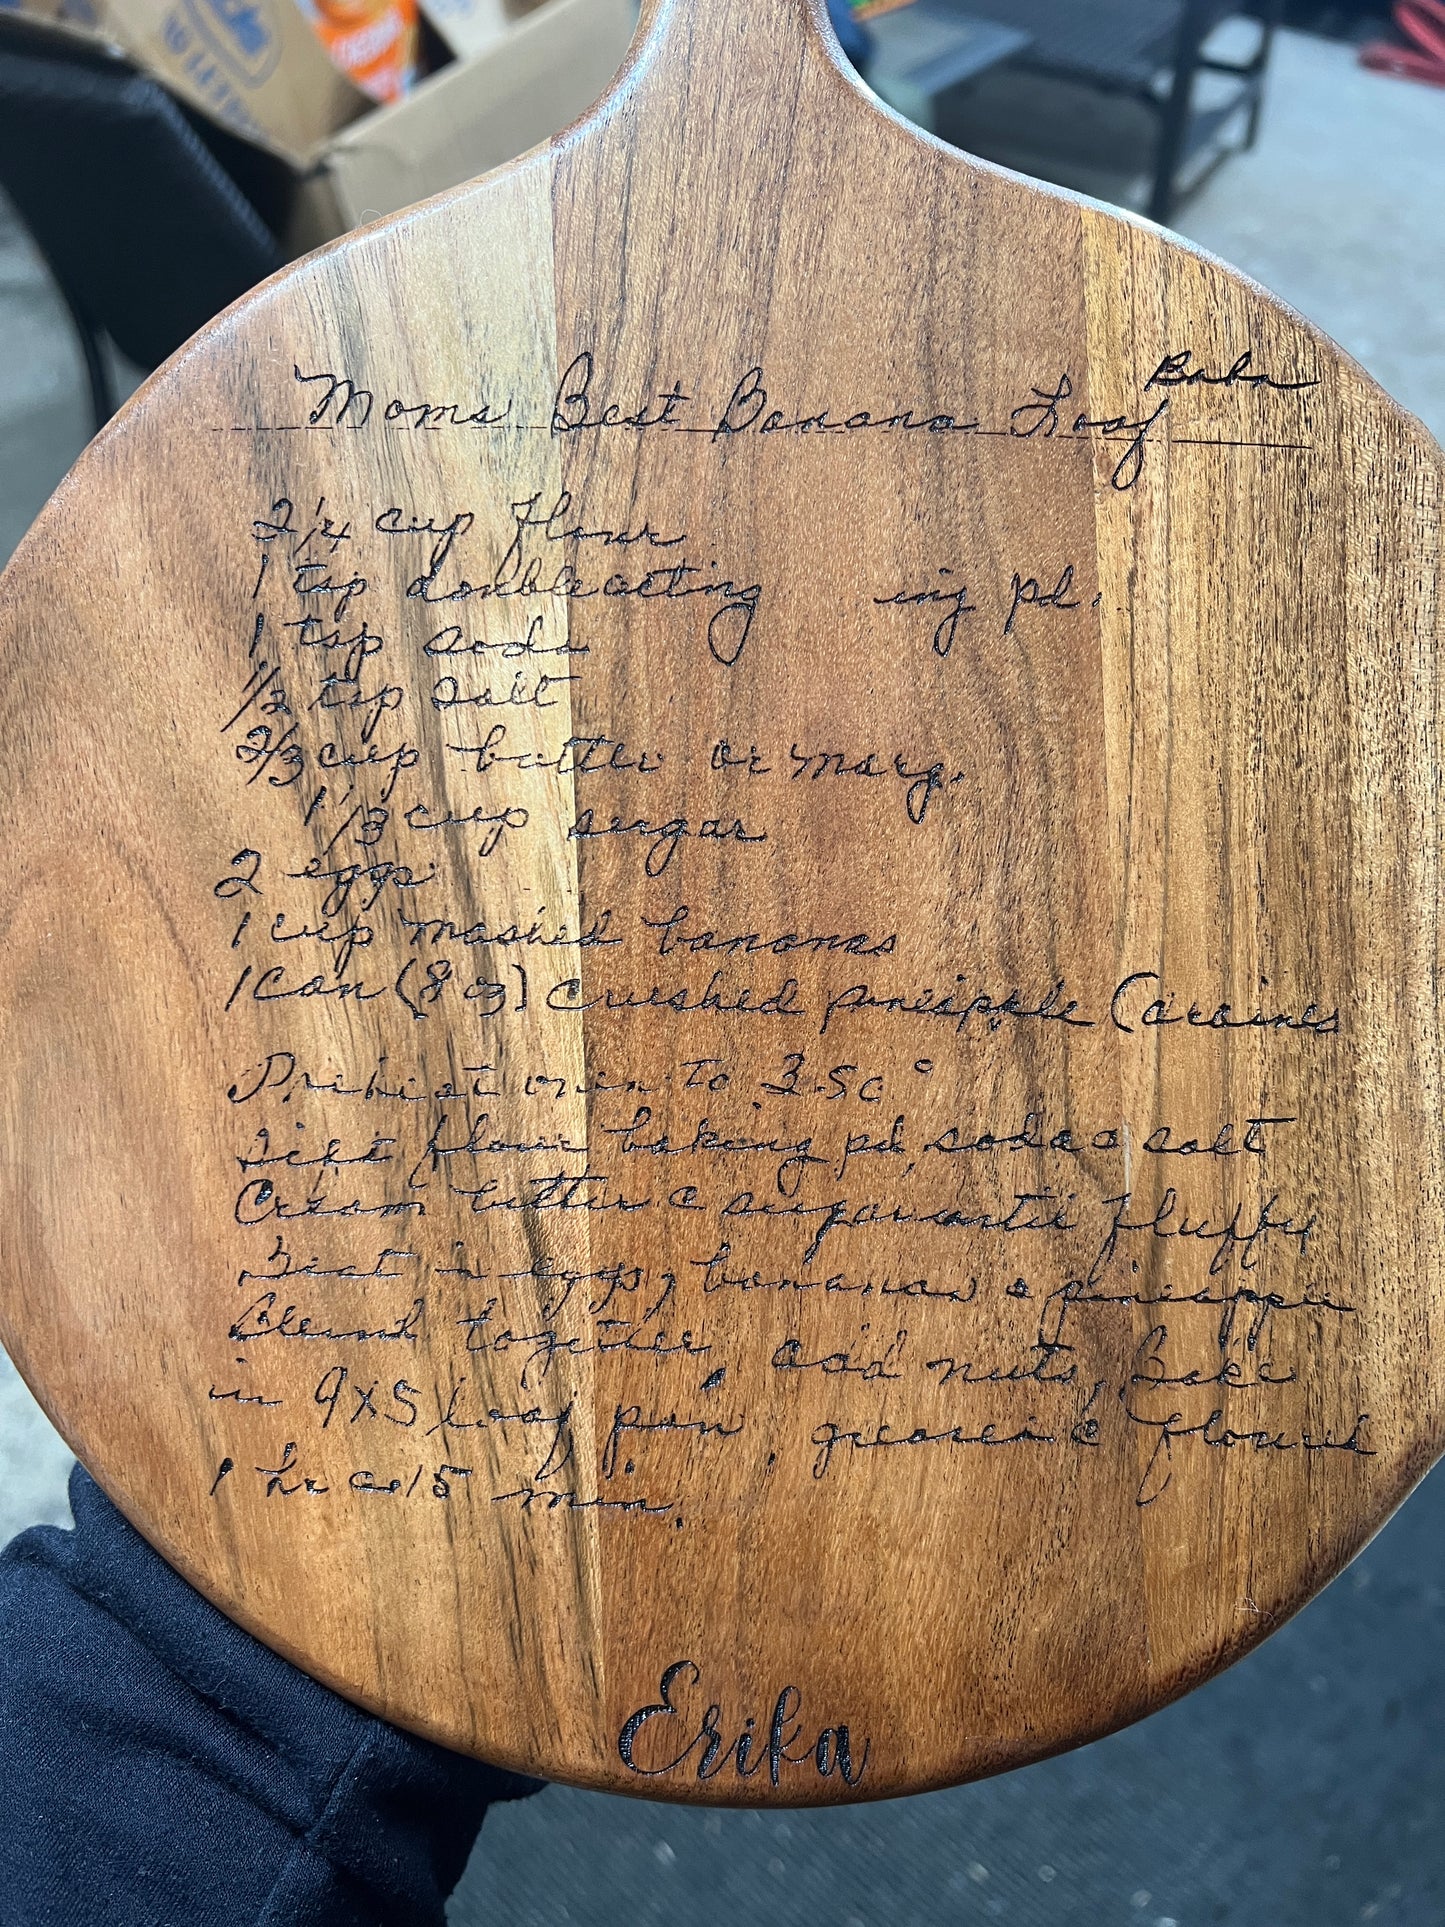 Baba
Moms Best Banana Loaf
2 1/4 cup flour
1 tsp doubleacting ing pd.
1 tsp soda
1/2 tsp salt
2/3 cup butter or marg.
1 1/3 cup sugar
2 eggs
1 cup mashed bananas
1 can (8 oz) crushed pineapple (drained
Preheat oven to 350°
Sift flour baking pd, soda & salt
Cream butter & sugar until fluffy
Beat in eggs, bananas & pineapple
Blend together, add nuts, Bake
in 9x5 loaf pan, greased & floured
1 hr 15 min.
Erika